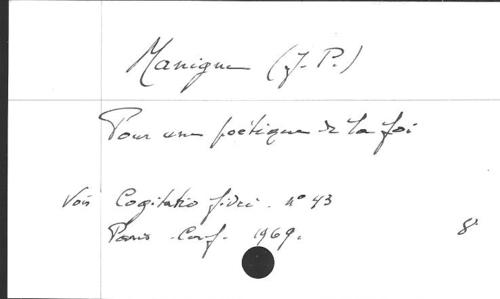 Manigne (J.-P.)
Pour une poétique de la foi
Voir Cogitatio fidei. n° 43
Paris - Cerf. 1969. 8°